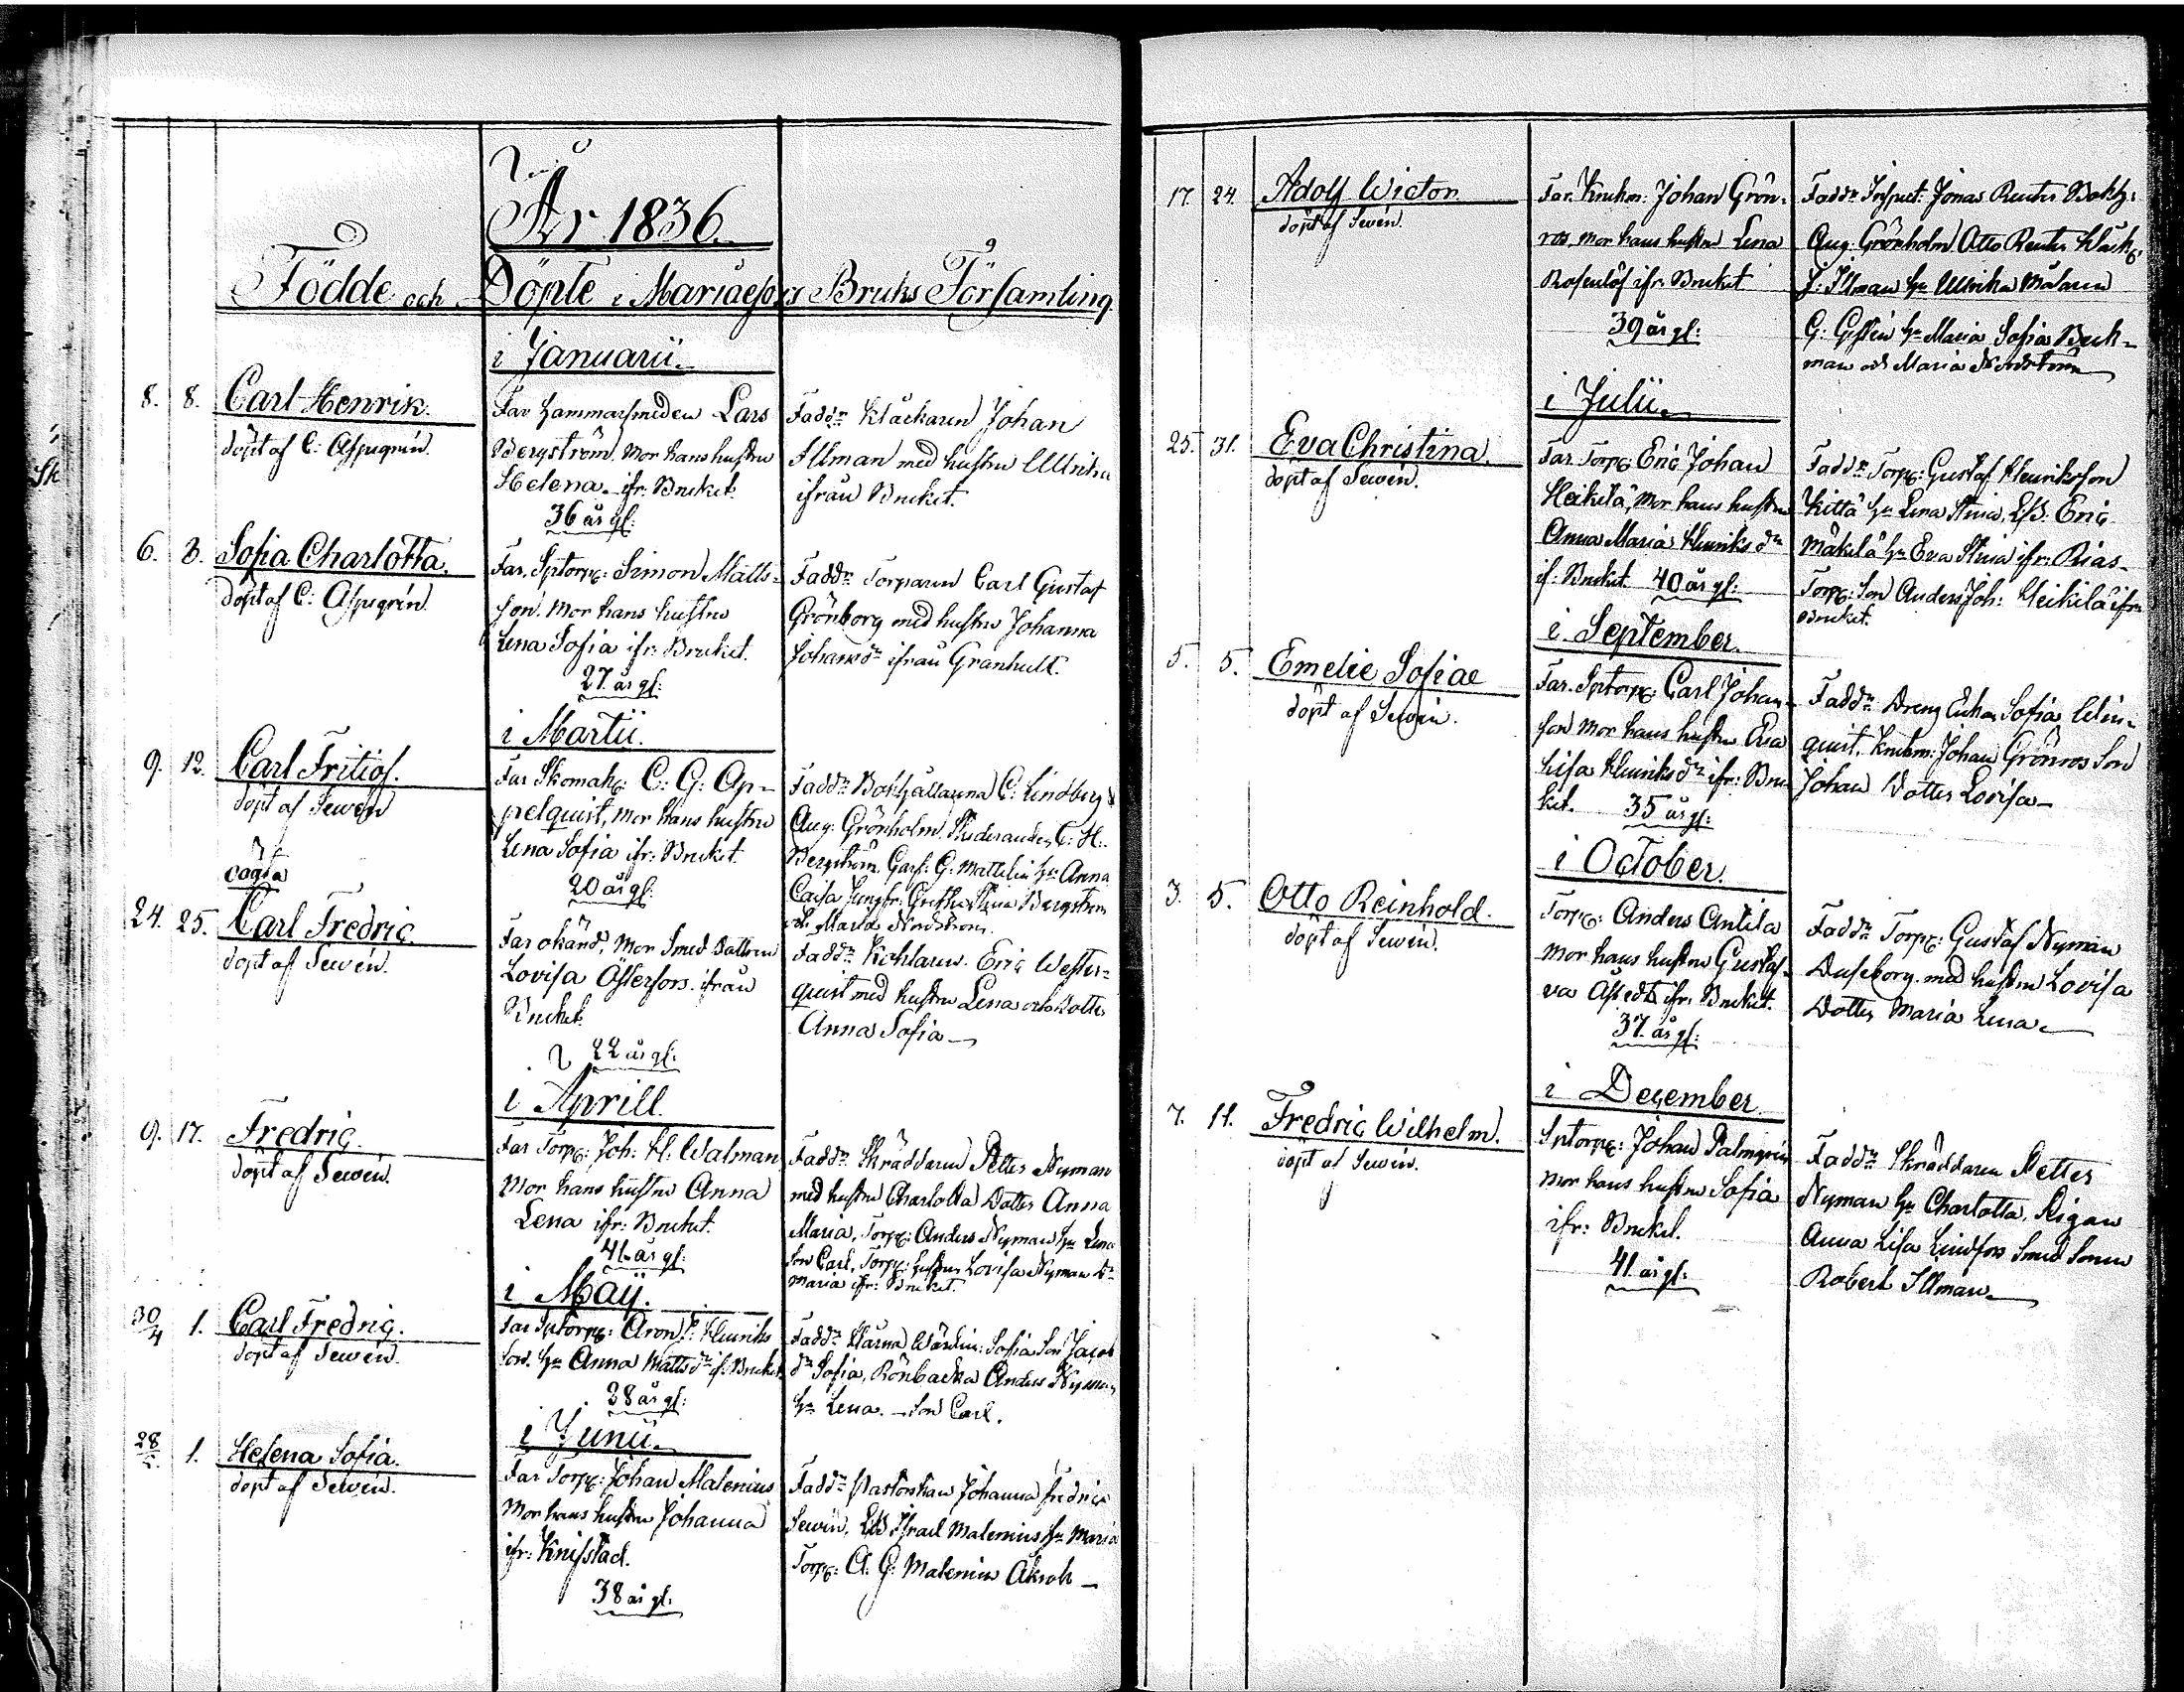 År 1836.
Födde och Döpte i Mariaefors Bruks Församling.
i Januarii.
8. 8. Carl Henrik.
döpt af C: Aspegrén.
Far Hammarsmeden Lars
Bergström. Mor hans hustru
Helena. ifr: Bruket.
36 år gl:
Faddr Kläckaren Johan
Illman med hustru Ullrika
ifrån Bruket.
6. 8. Sofia Charlotta.
döpt af C: Aspegrén.
Far. Sptorp: Simon Matts-
son. Mor hans hustru
Lena Sofia ifr: Bruket.
27. år gl:
Faddr Torparen Carl Gustaf
Grönborg med hustru Johanna
Johansdr ifrån Granhult.
i Martii.
9. 12. Carl Fritiof.
döpt af Sewén
Far Skomak: C: G: Ap-
pelquist, Mor hans hustru
Lena Sofia ifr: Bruket.
20 år gl:
Faddr Bokhållarna C: Lindberg
Aug: Grönholm, Studeranden C: H:
Bergström. G: Mattelin hr Anna
Caisa Jungfr: Stina Bergström
Maria Nordström.
oägta
24. 25. Carl Fredric.
döpt af Sewén.
Far okänd, Mor Smed dattren
Lovisa Österfors. ifrån
Bruket.
22 år gl:
Faddr Kohlaren. Eric Wester-
quist med hustru Lena och Dotter
Anna Sofia
i Aprill.
9. 17. Fredric.
döpt af Sewén.
Far Torp: Joh: H: Walman
Mor hans hustru Anna
Lena ifr: Bruket.
41. år gl:
Faddr Skräddaren Petter Nyman
med hustru Charlotta Dotter Anna
Maria, Torp: Anders Nyman hr Lena
Son Carl, Torp: hustru Lovisa Nyman Dr
Maria ifr: Bruket.
i Maij.
30/4 1. Carl Fredric.
döpt af Sewén.
Far Sptorp: Aron Henriks
son. hr Anna Mattsdr if: Bruket
38 år gl:
Faddr Sofia Son Jacob
dr Sofia, Rönbacka Anders Nyman
hr Lena. Son Carl.
i Junii.
28/5. 1. Helena Sofia.
döpt af Sewén.
Far Torp: Johan Malenius
Mor hans hustru Johanna
ifr: Knifstad.
38 år gl:
Faddr Pastorskan Johanna Fredrica
Sewén, Israel Malenius hr Maria
Torp: A: G: Malenius
17. 24. Adolf Wictor.
döpt af Sewén.
Far. Knekn: Johan Grön-
ros, Mor hans hustru Lena
Rosenlöf ifr: Bruket
39 år gl:
Faddr Inspect: Jonas Reuter Bokh:
Aug: Grönholm Otto Reuter Kläck:
J: Illman hr Ullrika Målaren
G: hr Maria Sofia Beck-
man och Maria Nordström
i Julii.
25. 31. Eva Christina.
döpt af Sewén.
Far Torp: Eric Johan
Heikilä, Mor hans hustru
Anna Maria Henriksdr
if: Bruket. 40 år gl:
Faddr Torp: Gustaf Henriksson
Kittä hr Lena Stina, Eric
Mäkelä hr Eva Stina ifr:
Torp: Son Anders Joh: Heikilä ifrn
Bruket.
i September.
5. 5. Emelie Sofiae
döpt af Sewén.
Far. Sptorp: Carl Johan-
son Mor hans hustru Eva
Lisa Henriksdr ifr: Bru-
ket. 35 år gl:
Faddr Dreng Enkan Sofia Win-
quist. Knekn: Johan Grönros Son
Johan Dotter Lovisa
i October.
3. 5. Otto Reinhold.
döpt af Sewén.
Torp: Anders Antila
Mor hans hustru Gustaf-
va ifr: Bruket.
37. år gl:
Faddr Torp: Gustaf Nyman
Duseborg. med hustru Lovisa
Dotter Maria Lena
i December
7. 11. Fredric Wilhelm.
döpt af Sewén.
Sptorp: Johan Palmgrén
Mor hans hustru Sofia
ifr: Bruket.
41. år gl:
Faddr Skräddaren Petter
Nyman hr Charlotta, Pigan
Anna Lisa Lindfors Smed Sonen
Robert Illman